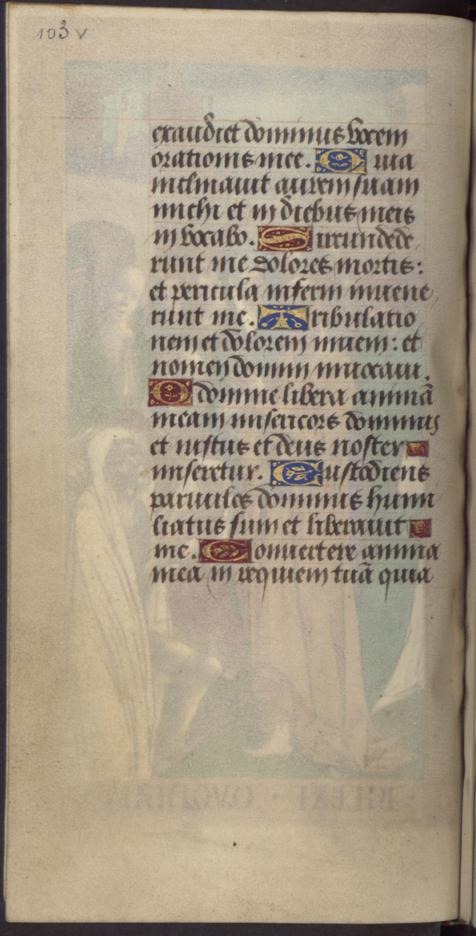 103v
exaudiet dominus vocem
orationis mee. Quia
inclinavit aurem suam
michi et in diebus meis
invocabo. Circundede
runt me dolores mortis:
et pericula inferni invene
runt me. Tribulatio
nem et dolorem inveni: et
nomen domini invocavi.
O domine libera animā
meam misericors dominus
et iustus et deus noster
miseretur. Custodiens
parvulos dominus humi
liatus sum et liberavit
me. Convertere anima
mea in requiem tuā quia
DILEXI · QVONIAM